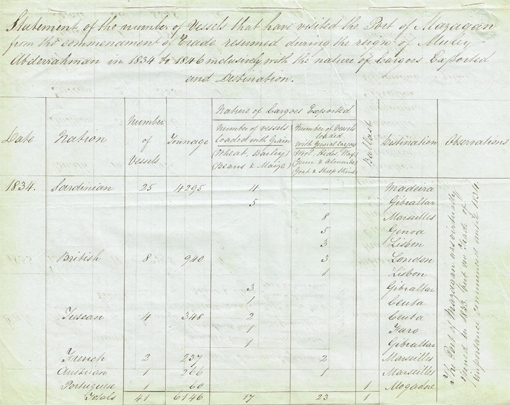 Statement of the number of Vessels that have visited the Port of Mazagan
from the commencement of Trade resumed during the reign of Muley
Abderrahman in 1834 to 1846 inclusive with the nature of Cargoes Exported
and Destination.
Nature of Cargoes Exported
Date Nation Number of Vessels Tunnage Number of Vessels Loaded with Grain (Wheat, Barley, Beans & Maize) Number of Vessels Loaded with General Cargoes Wool Hides Wax Gums & Almonds Goat & Sheep Skins Ballast Destination Observations
1834. Sardinian 25 4295 4 Madeira
5 Gibraltar
8 Marseilles
5 Genoa
3 Lisbon
British 8 940 3 London
1 Lisbon
3 Gibraltar
1 Ceuta
Tuscan 4 348 2 Ceuta
1 Faro
1 Gibraltar
French 2 237 2 Marseilles
Austrian 1 266 1 Marseilles
Portuguese 1 60 1 Mogadore
Totals 41 6146 17 23 1
The Port of Mazagan was virtually
in 1833 but no Trade of
importance commenced until 1834.